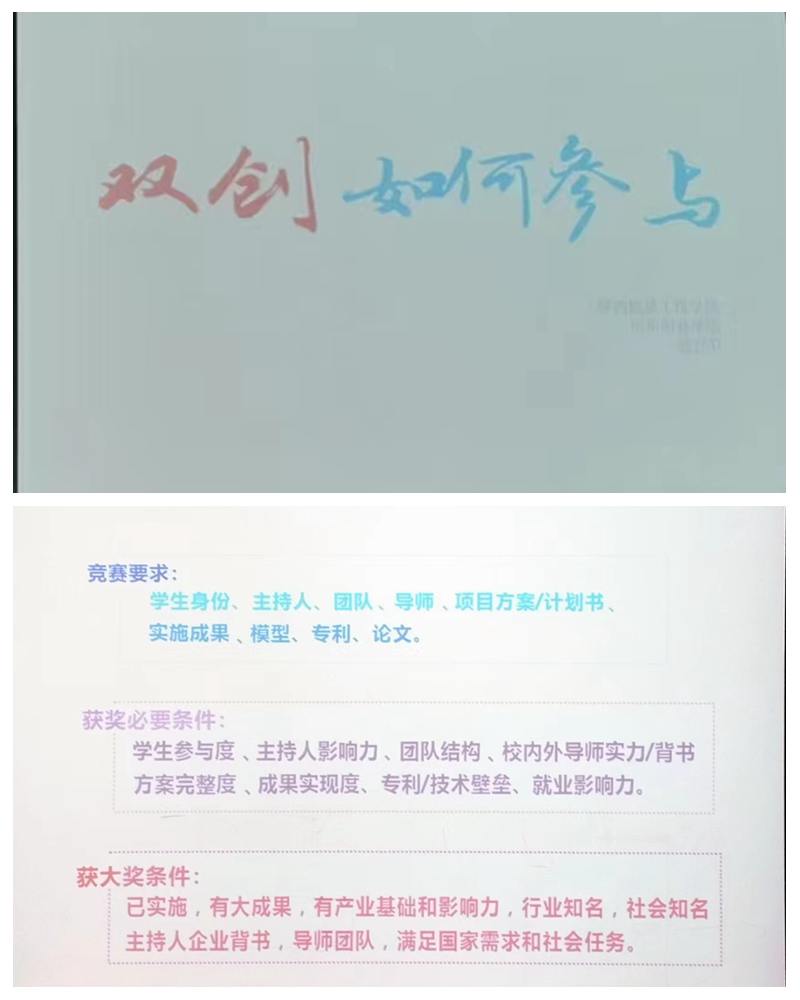 双创 如何参与
竞赛要求：
学生身份、主持人、团队、导师、项目方案/计划书、
实施成果、模型、专利、论文。
获奖必要条件：
学生参与度、主持人影响力、团队结构、校内外导师实力/背书
方案完整度、成果实现度、专利/技术壁垒、就业影响力。
获大奖条件：
已实施，有大成果，有产业基础和影响力，行业知名，社会知名
主持人企业背书，导师团队，满足国家需求和社会任务。